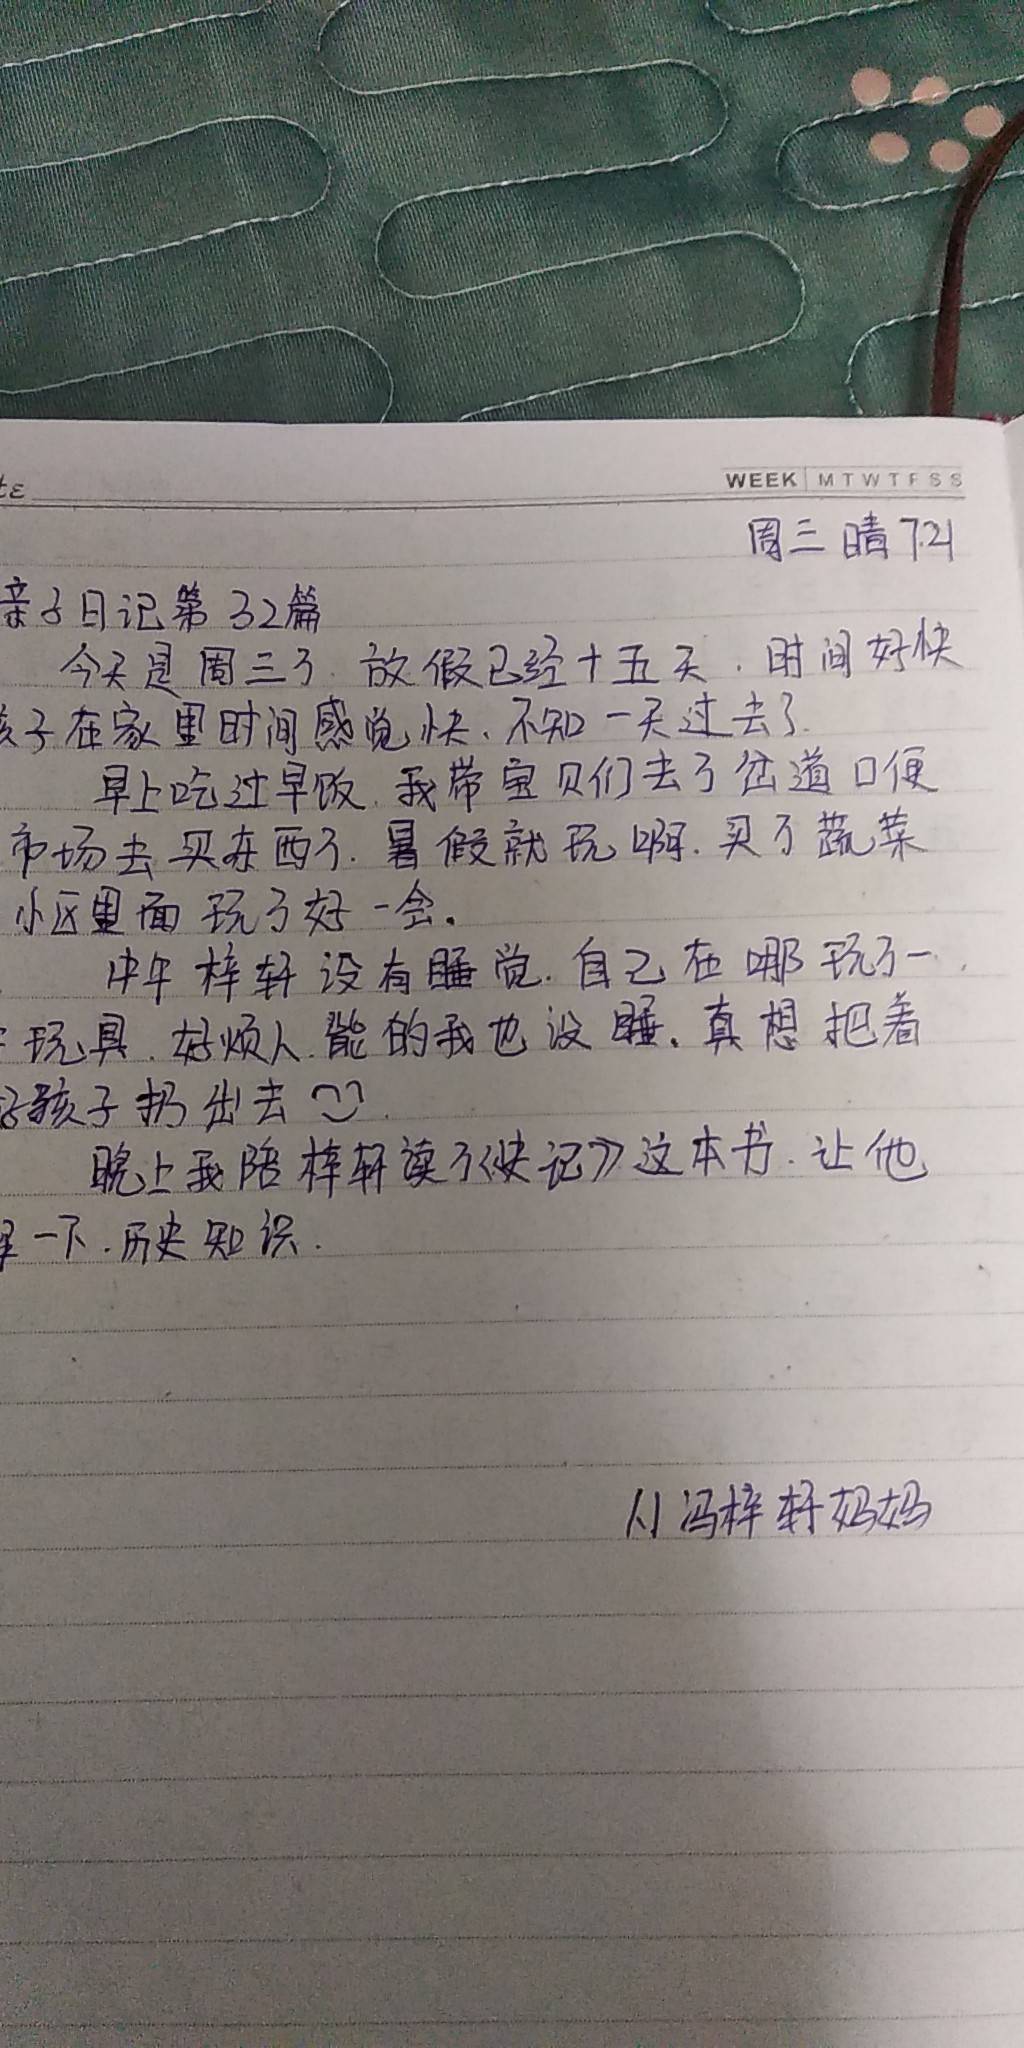 WEEK M T W T F S S
周三 晴 7.21
亲子日记第32篇
今天是周三了.放假已经十五天.时间好快
孩子在家里时间感觉快、不知一天过去了.
早上吃过早饭.我带宝贝们去了岔道口便
市场去买东西了.暑假就玩啊.买了蔬菜
小区里面玩了好一会。
中午梓轩没有睡觉.自己在哪玩了一
玩具.好烦人.能的我也没睡。真想把着
孩子扔出去
晚上我陪梓轩读了《史记》这本书.让他
一下.历史知识.
冯梓轩妈妈